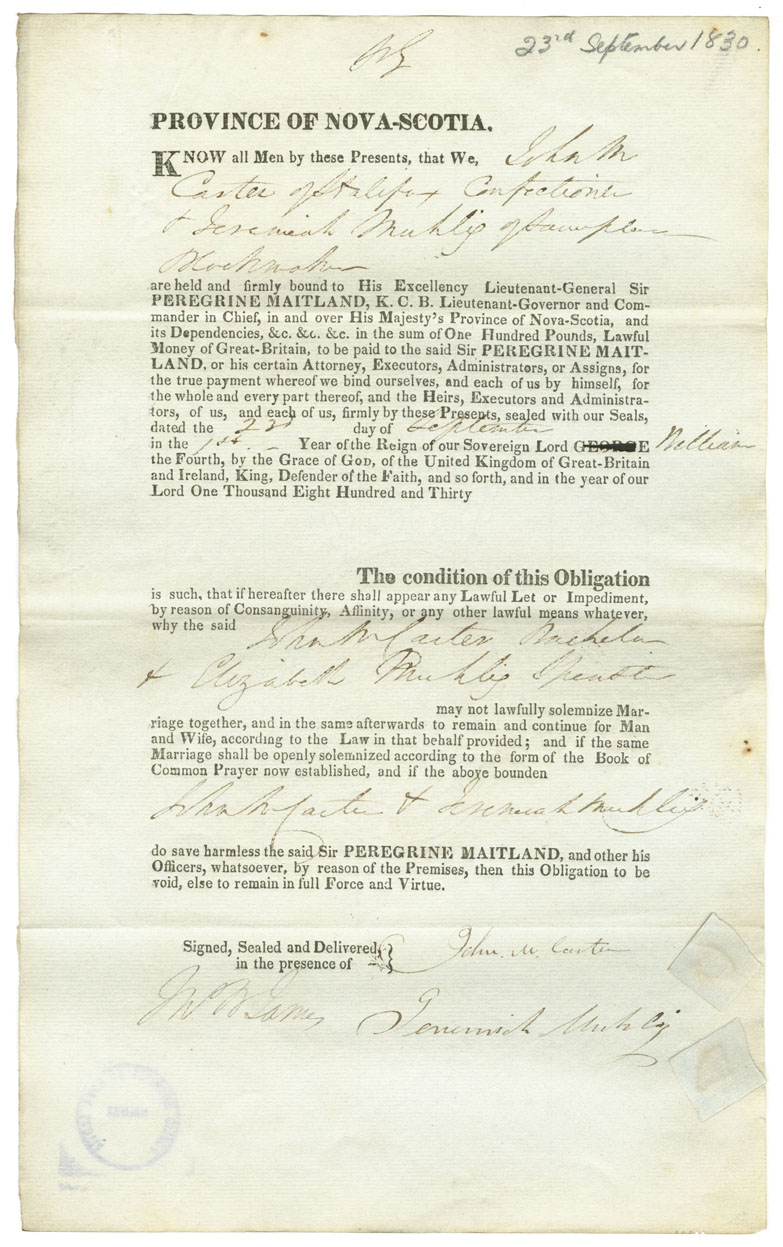 23rd September 1830.
PROVINCE OF NOVA-SCOTIA.
KNOW all Men by these Presents, that We, John M
Carter of Halifax Confectioner
& Jeremiah Muhlig of same place
Blockmaker
are held and firmly bound to His Excellency Lieutenant-General Sir
PEREGRINE MAITLAND, K. C. B. Lieutenant-Governor and Com-
mander in Chief, in and over His Majesty's Province of Nova-Scotia, and
its Dependencies, &c. &c. &c. in the sum of One Hundred Pounds, Lawful
Money of Great-Britain, to be paid to the said Sir PEREGRINE MAIT-
LAND, or his certain Attorney, Executors, Administrators, or Assigns, for
the true payment whereof we bind ourselves, and each of us by himself, for
the whole and every part thereof, and the Heirs, Executors and Administra-
tors, of us, and each of us, firmly by these Presents, sealed with our Seals,
dated the 23d day of September
in the 1st Year of the Reign of our Sovereign Lord GEORGE William
the Fourth, by the Grace of GOD, of the United Kingdom of Great-Britain
and Ireland, King, Defender of the Faith, and so forth, and in the year of our
Lord One Thousand Eight Hundred and Thirty
The condition of this Obligation
is such, that if hereafter there shall appear any Lawful Let or Impediment,
by reason of Consanguinity, Affinity, or any other lawful means whatever,
why the said John M Carter Bachelor
& Elizabeth Muhlig Spinster
may not lawfully solemnize Mar-
riage together, and in the same afterwards to remain and continue for Man
and Wife, according to the Law in that behalf provided; and if the same
Marriage shall be openly solemnized according to the form of the Book of
Common Prayer now established, and if the above bounden
John M Carter & Jeremiah Muhlig
do save harmless the said Sir PEREGRINE MAITLAND, and other his
Officers, whatsoever, by reason of the Premises, then this Obligation to be
void, else to remain in full Force and Virtue.
Signed, Sealed and Delivered,
in the presence of
John. M. Carter
Jno B James
Jeremiah Muhlig